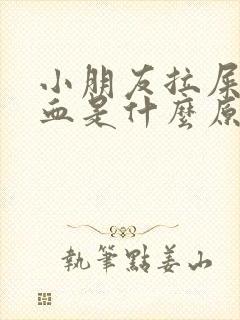 小朋友拉屎
血是什麼原
執筆點姜山